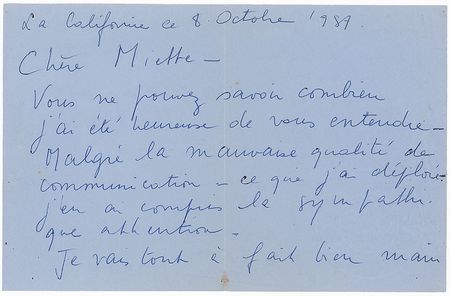 La Californie ce 8 Octobre 1987.
Chère Miette –
Vous ne pouvez savoir combien
j'ai été heureuse de vous entendre –
Malgré la mauvaise qualité de
communication – ce que j'ai déploré –
j'en ai compris la sympathi-
que attention –
Je vais tout à fait bien main